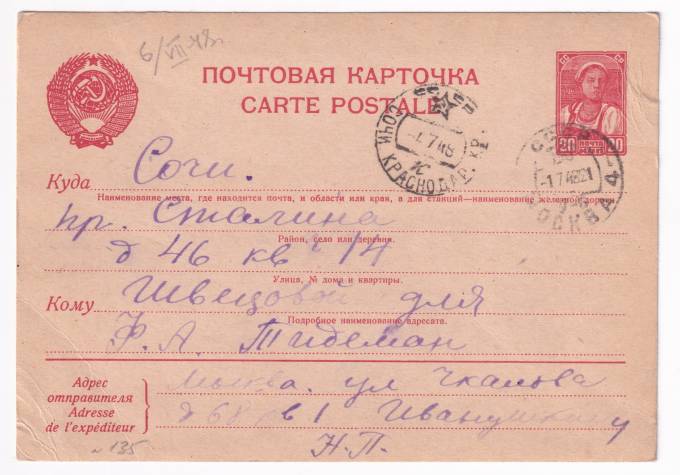 6/VII-48г.
ПОЧТОВАЯ КАРТОЧКА
CARTE POSTALE
СОЧИ КРАСНОДАР. КР.
7 48
СССР
20 ПОЧТА
МОСКВА
-1 7 48 21
Куда Сочи.
Наименование места, где находится почта, и области или края, а для станций—наименование железной дороги
пр. Сталина
Район, село или деревня.
д 46 кв 14
Улица, № дома и квартиры.
Кому Швецовой для
Подробное наименование адресата.
Ф. А. Тидеман
Адрес
отправителя
Adresse
de l'expéditeur
Москва. ул Чкалова
д 68 кв 1 Иванушкину
Н.П.
135